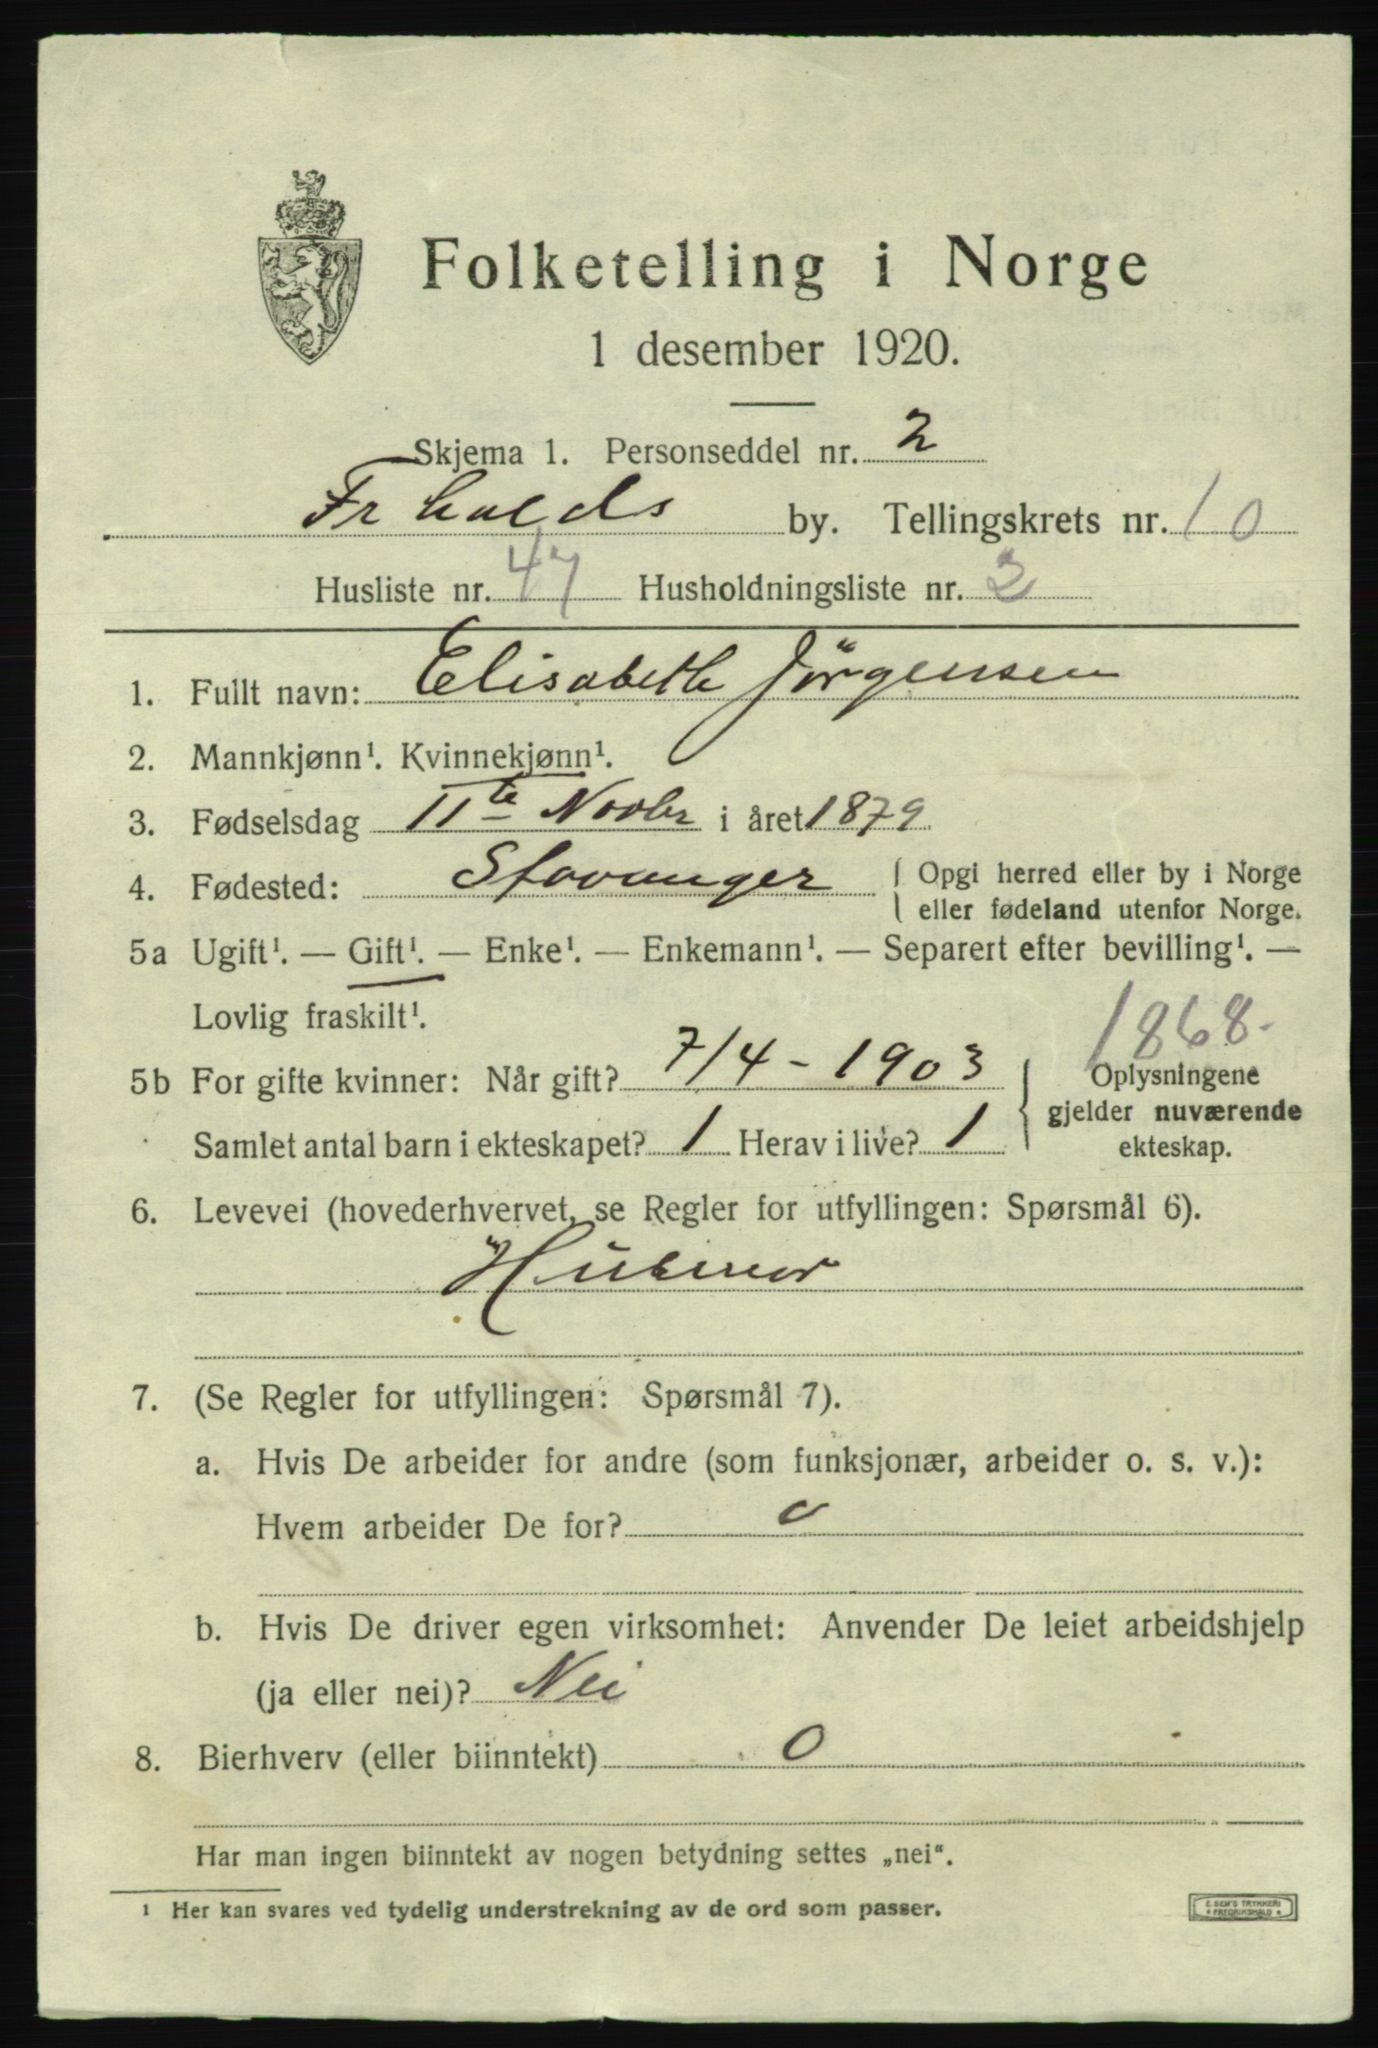 Folketelling i Norge
1 desember 1920.
Skjema 1. Personseddel nr. 2
Fr halds by. Tellingskrets nr. 10
Husliste nr. 47 Husholdningsliste nr. 2
1. Fullt navn: Elisabeth Jörgensen
2. Mannkjønn¹. Kvinnekjønn¹.
3. Fødselsdag 11te Novbr i året 1879
4. Fødested: Stavanger { Opgi herred eller by i Norge
eller fødeland utenfor Norge.
5a Ugift¹. — Gift¹. — Enke¹. — Enkemann¹. — Separert efter bevilling¹. —
Lovlig fraskilt¹.
1868.
5b For gifte kvinner: Når gift? 7/4 - 1903 { Oplysningene
gjelder nuværende
Samlet antal barn i ekteskapet? 1 Herav i live? 1 ekteskap.
6. Levevei (hovederhvervet, se Regler for utfyllingen: Spørsmål 6).
Husmor
7. (Se Regler for utfyllingen: Spørsmål 7).
a. Hvis De arbeider for andre (som funksjonær, arbeider o. s. v.):
Hvem arbeider De for? 0
b. Hvis De driver egen virksomhet: Anvender De leiet arbeidshjelp
(ja eller nei)? Nei
8. Bierhverv (eller biinntekt) 0
Har man ingen biinntekt av nogen betydning settes „nei“.
¹ Her kan svares ved tydelig understrekning av de ord som passer.
E. SEM'S TRYKKERI
FREDRIKSHALD